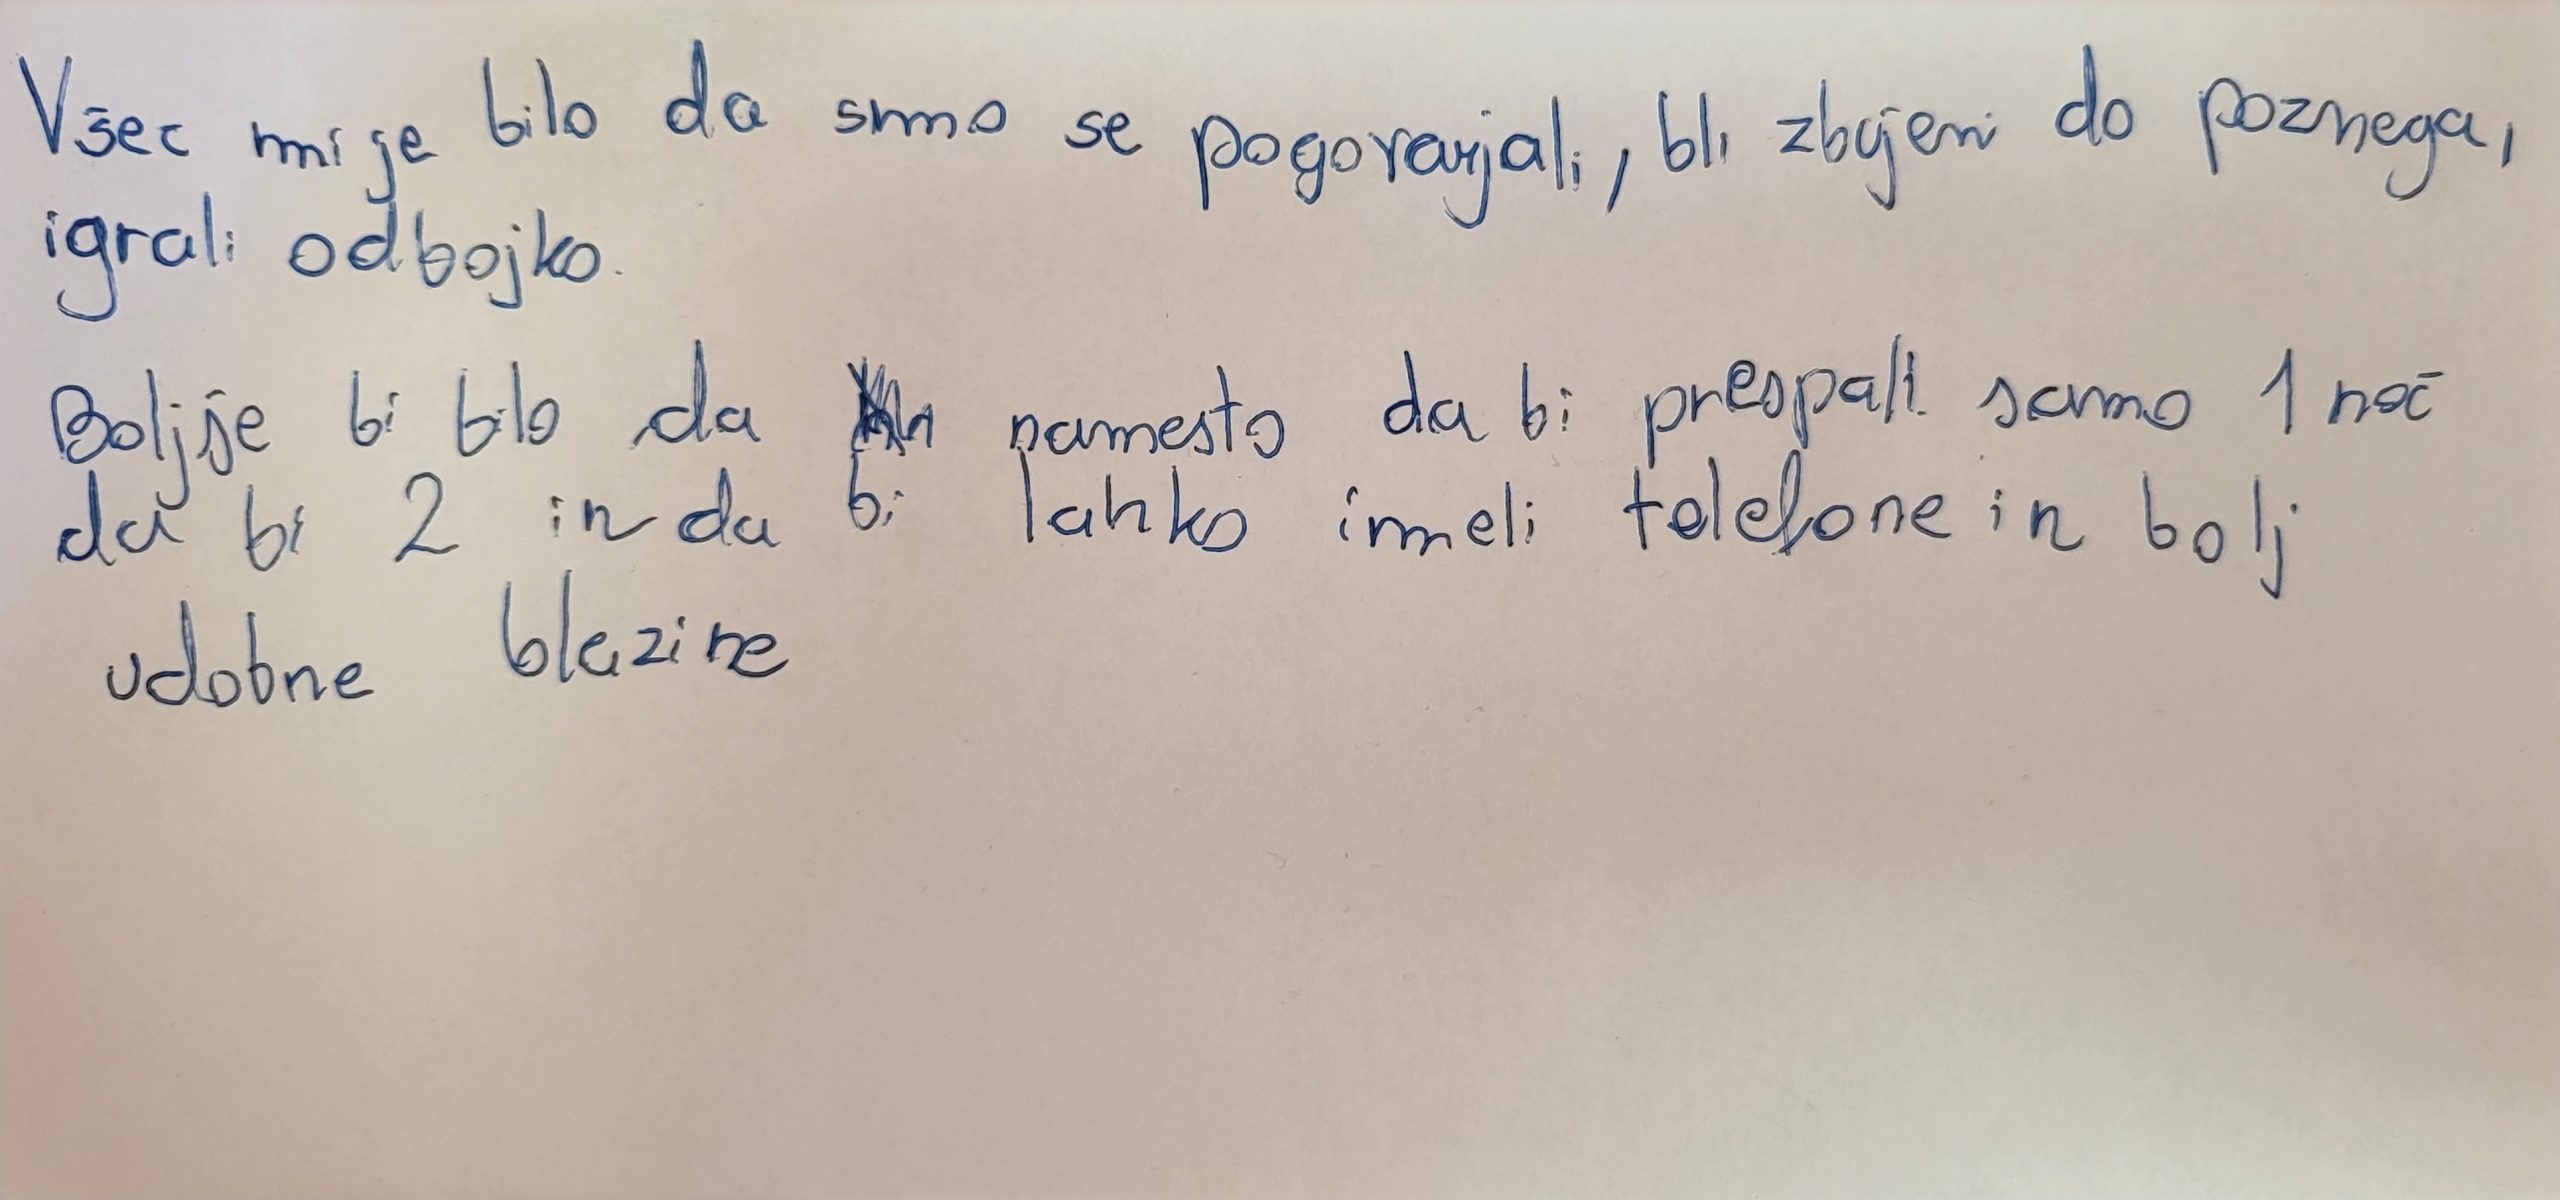 Všec mi je bilo da smo se pogovarjali, bli zbujeni do poznega,
igrali odbojko.
Boljše bi bilo da namesto da bi prespali samo 1 noč
da bi 2 in da bi lahko imeli telefone in bolj
udobne blazine